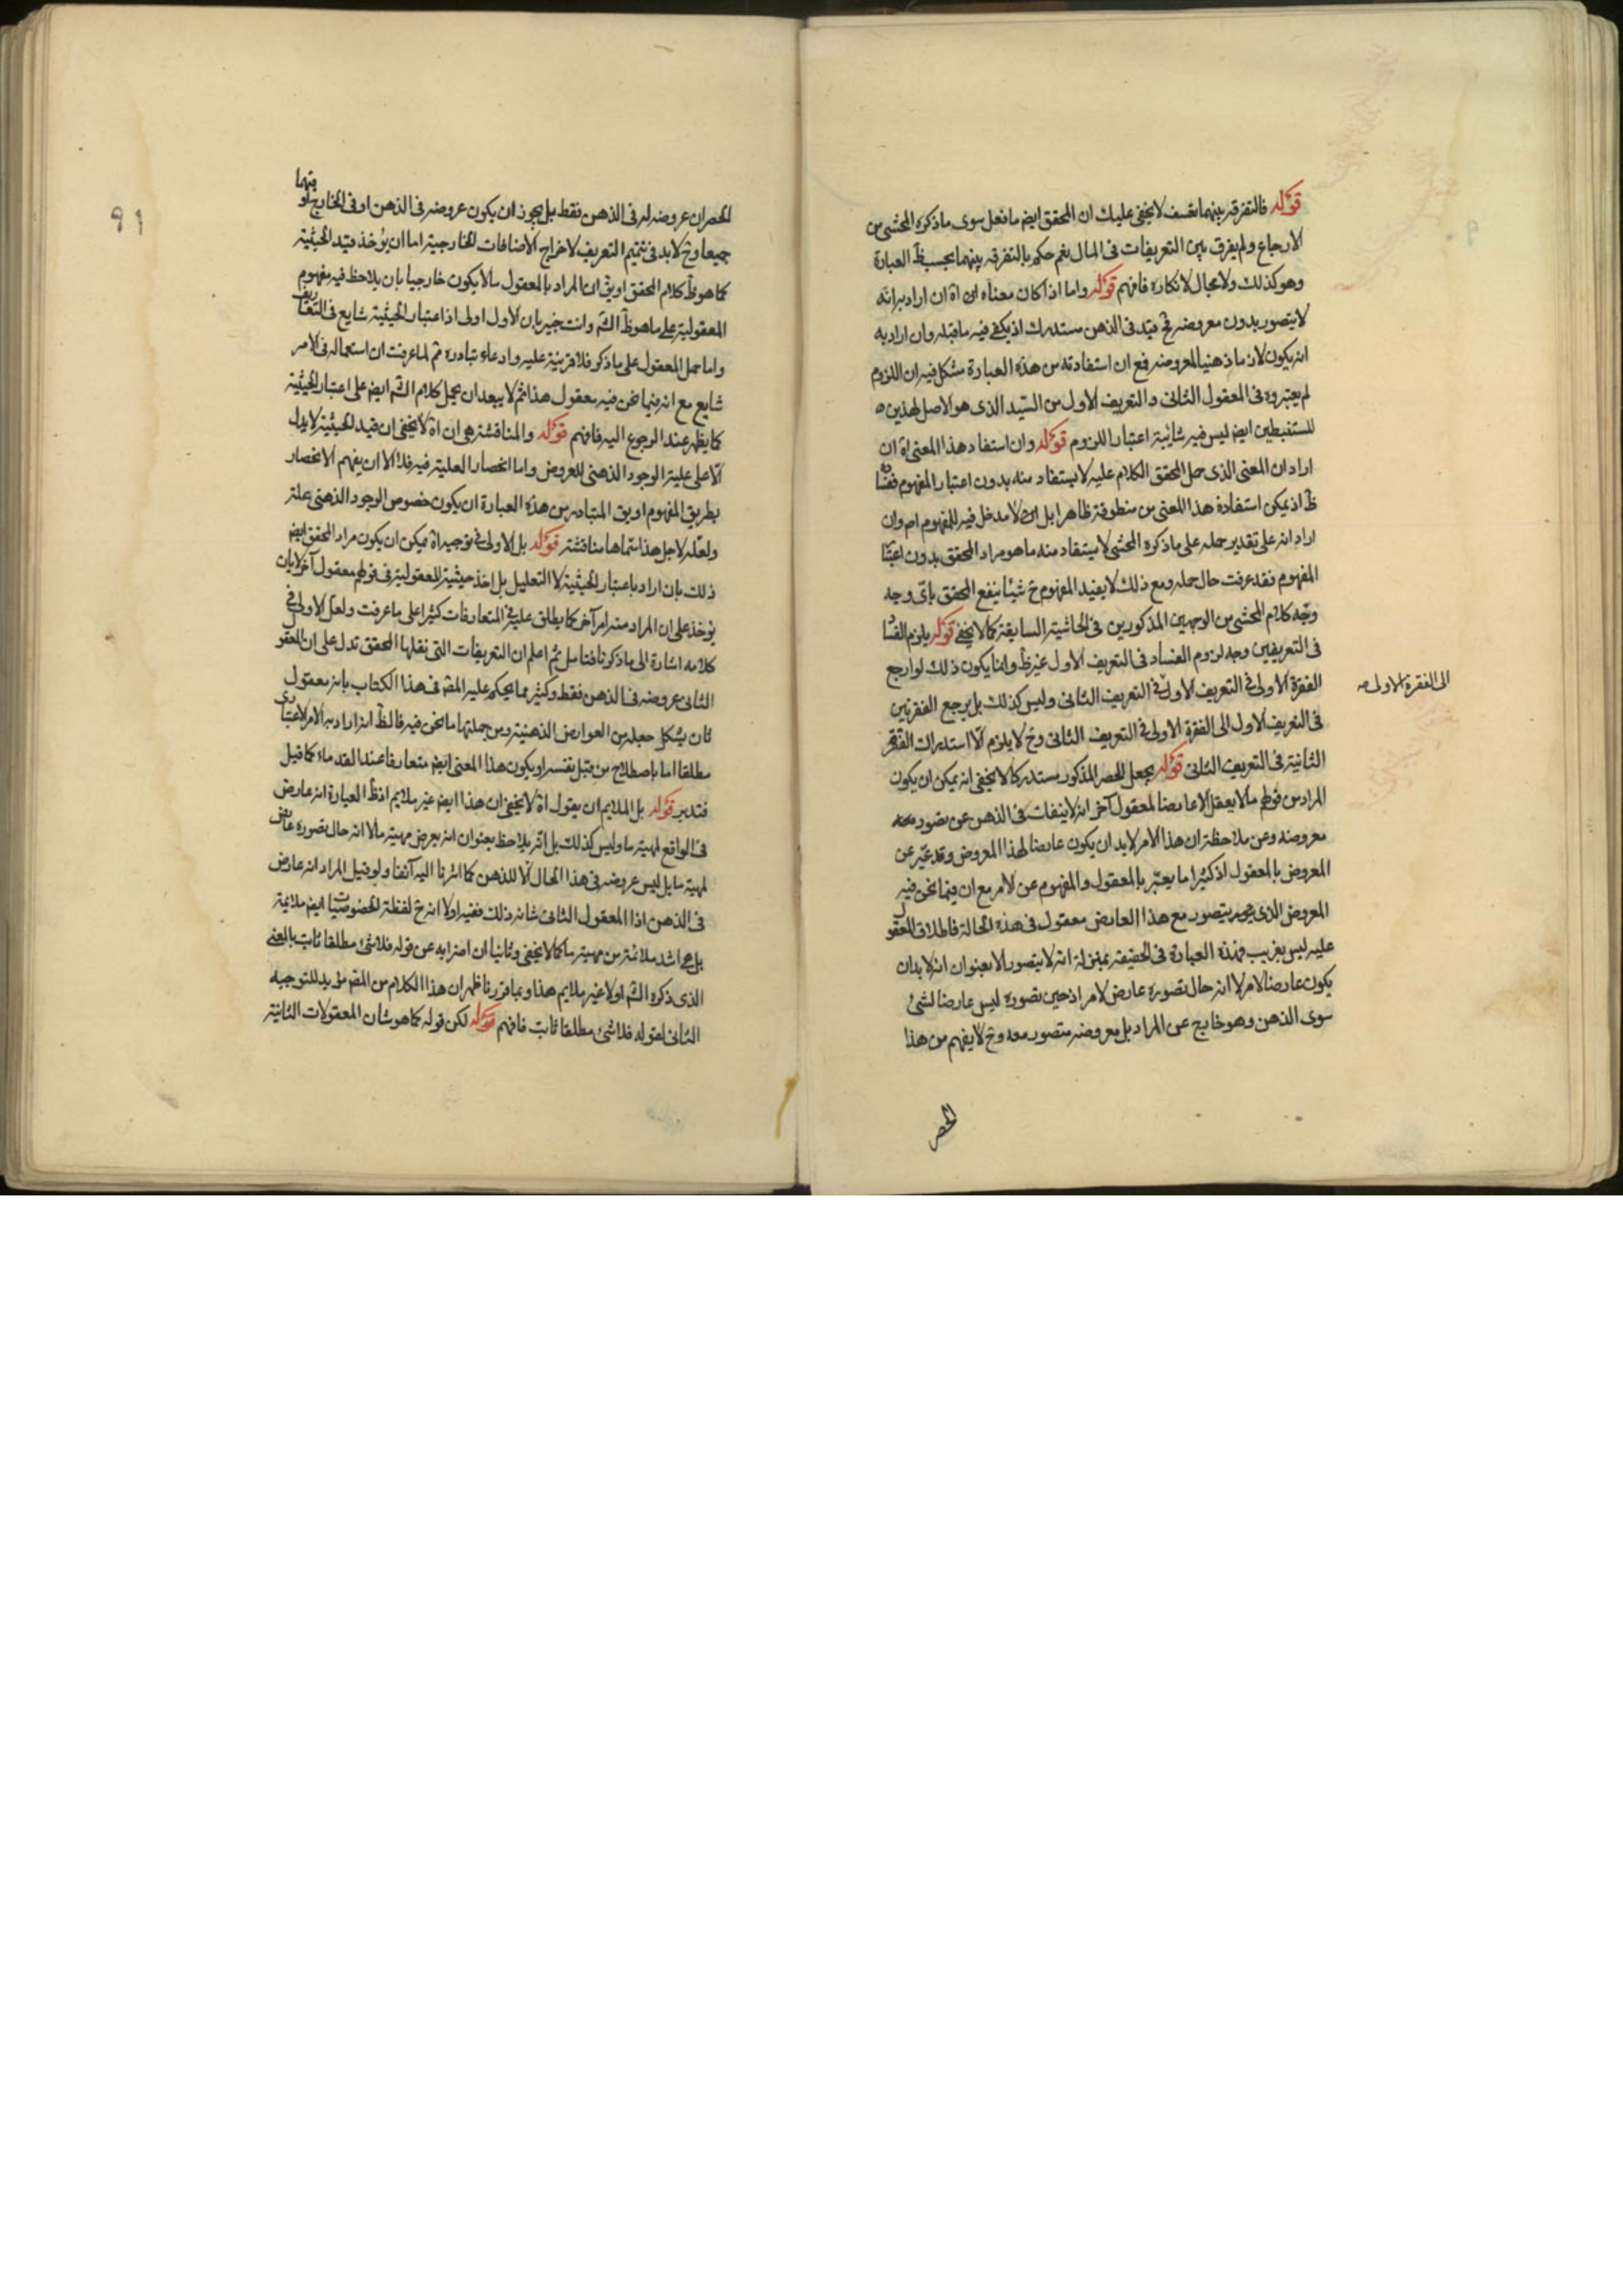 قوله فالتفرقة بينهما تعسف لا يخفى عليك ان المحقق ايضا ما فعل سوى ما ذكره المحشى من
الارجاع ولم يفرق بين التعريفات فى المال نعم حكم بالتفرقة بينهما بحسب ظ العبارة
وهو كذلك ولا مجال لانكاره فافهم قوله واما اذا كان معناه ان اه ان اراد به انه
لا يتصور بدون معروضه فح قيد فى الذهن مستدرك اذ يكفى فيه ما قبله وان اراد به
انه يكون لازما ذهنيا لمعروضه فمع ان استفادته من هذه العبارة مشكل فيه ان اللزوم
لم يعتبروه فى المعقول الثانى والتعريف الاول من السيد الذى هو الاصل لهذين
المستنبطين ايضا ليس فيه شائبة اعتبار اللزوم قوله وان استفاد هذا المعنى اه ان
اراد ان المعنى الذى حمل المحقق الكلام عليه لا يستفاد منه بدون اعتبار المفهوم ففساده
ظ اذ يمكن استفادة هذا المعنى من منطوقه ظاهرا بل لا مدخل فيه للمفهوم اصلا وان
اراد انه على تقدير حمله على ما ذكره المحشى لا يستفاد منه ما هو مراد المحقق بدون اعتبار
المفهوم فقد عرفت حال حمله ومع ذلك لا يفيد المفهوم ح شيئا ينفع المحقق باى وجه
وجه كلام المحشى من الوجهين المذكورين فى الحاشية السابقة كما لا يخفى قوله يلزم الفساد
فى التعريفين وجه لزوم الفساد فى التعريف الاول غير ظ وانما يكون ذلك لو ارجع
الفقرة الاولى فى التعريف الاول فى التعريف الثانى وليس كذلك بل يرجع الفقرتين
الى الفقرة الاولى صح
فى التعريف الاول الى الفقرة الاولى فى التعريف الثانى وح لا يلزم الا استدراك الفقرة
الثانية فى التعريف الثانى قوله يجعل للحصر المذكور مستدركا لا يخفى انه يمكن ان يكون
المراد من قولهم ما لا يعقل الا عارضا لمعقول آخر انه لا ينفك فى الذهن عن تصور
معروضه وعن ملاحظة ان هذا الامر لا بد ان يكون عارضا لهذا المعروض وقد عبر عن
المعروض بالمعقول اذ كثيرا ما يعبر بالمعقول والمفهوم عن الامر مع ان فيما نحن فيه
المعروض الذى يتصور مع هذا العارض معقول فى هذه الحالة فاطلاق المعقول
عليه ليس بغريب فهذه العبارة فى الحقيقة بمنزلة انه لا يتصور الا بعنوان انه لا بد ان
يكون عارضا لامر لا انه حال تصوره عارض لامر اذ حين تصوره ليس عارضا لشئ
سوى الذهن وهو خارج عن المراد بل معروضه متصور معه وح لا يفهم من هذا
الحصر
٩١
الحصر ان عروضه له فى الذهن فقط بل يجوز ان يكون عروضه فى الذهن او فى الخارج او فيهما
جميعا وح لا بد فى تتميم التعريف لاخراج الاضافات الخارجية اما ان يؤخذ قيد الحيثية
كما هو ظ كلام المحقق او يق ان المراد بالمعقول ما لا يكون خارجيا بان يلاحظ فيه مفهوم
المعقولية على ما هو ظ الش وانت خبير بان الاول اولى اذ اعتبار الحيثية شايع فى التعاريف
واما حمل المعقول على ما ذكر فلا قرينة عليه وادعاء تبادره مم لما عرفت ان استعماله فى الامر
شايع مع انه فيما نحن فيه معقول هذا ثم لا يبعد ان يحمل كلام الش ايضا على اعتبار الحيثية
كما يظهر عند الرجوع اليه فافهم قوله والمناقشة هى ان اه لا يخفى ان قيد الحيثية لا يدل
الا على علية الوجود الذهنى للعروض واما انحصار العلية فيه فلا الا ان يفهم الانحصار
بطريق المفهوم او يق المتبادر من هذه العبارة ان يكون خصوص الوجود الذهنى علة
ولعله لاجل هذا سماها مناقشة قوله بل الاولى فى توجيه اه فيمكن ان يكون مراد المحقق ايضا
ذلك بان اراد باعتبار الحيثية لا التعليل بل اخذ حيثية المعقولية فى قولهم معقول آخر لا بان
يؤخذ على ان المراد منه امر آخر كما يطلق عليه فى المتعارفات كثيرا على ما عرفت ولعل الاولى فى
كلامه اشارة الى ما ذكرنا فتامل ثم اعلم ان التعريفات التى نقلها المحقق تدل على ان المعقول
الثانى عروضه فى الذهن فقط وكثير مما يحكم عليه المص فى هذا الكتاب بانه معقول
ثان يشكل جعله من العوارض الذهنية ومن جملتها ما نحن فيه فالظ انه اراد به الامر الاعتبارى
مطلقا اما باصطلاح من قبل نفسه او يكون هذا المعنى ايضا متعارفا عند القدماء كما قيل
فتدبر قوله بل الملايم ان يقول اه لا يخفى ان هذا ايضا غير ملايم اذ ظ العبارة انه عارض
فى الواقع لمهية ما وليس كذلك بل انه يلاحظ بعنوان انه يعرض مهية ما لا انه حال تصوره عارض
لمهية ما بل ليس عروضه فى هذا الحال الا للذهن كما اشرنا اليه آنفا ولو قيل المراد انه عارض
فى الذهن اذ المعقول الثانى شانه ذلك ففيه اولا انه ح لفظة الخصوصيات ايضا ملايمة
بل هى اشد ملائمة من مهية ما كما لا يخفى وثانيا ان اضرابه عن قوله فلا شئ مطلقا ثابت بالمعنى
الذى ذكره الش اولا غير ملايم هذا وبما قررنا ظهر ان هذا الكلام من المص مؤيد للتوجيه
الثانى لقوله فلا شئ مطلقا ثابت فافهم قوله لكن قوله كما هو شان المعقولات الثانية